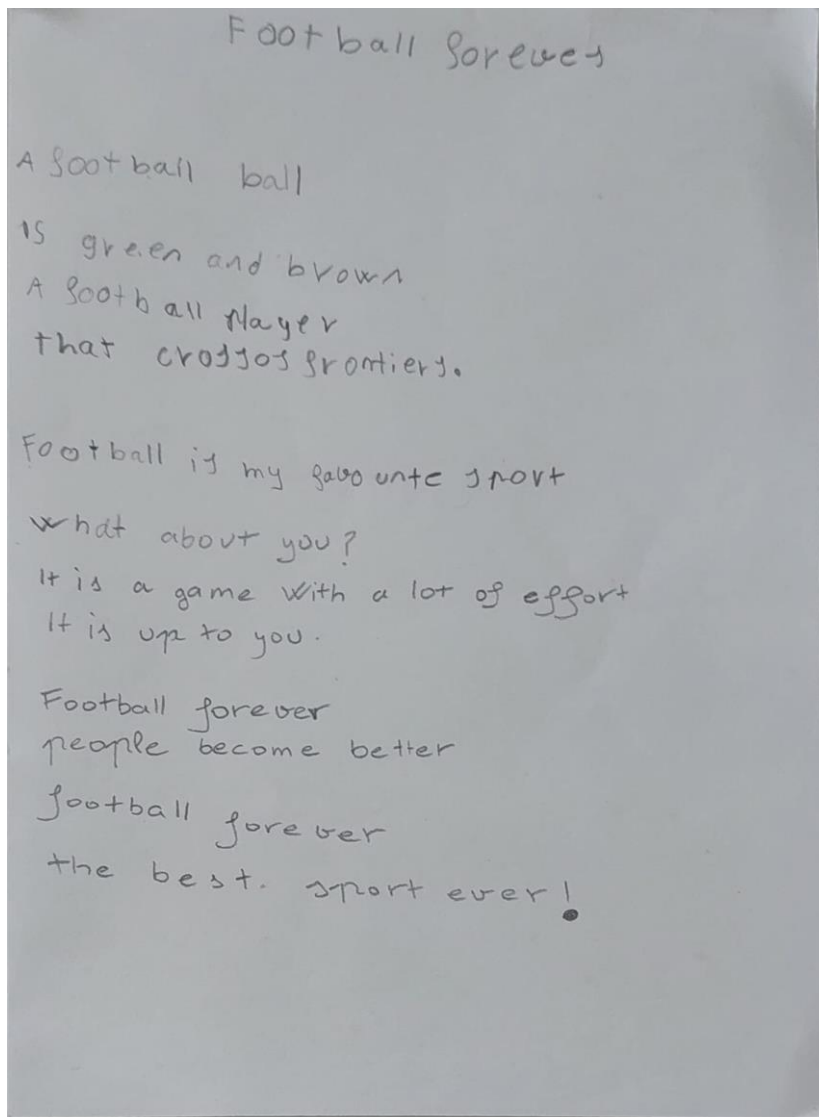 Football forever
A football ball
is green and brown
A football player
that crosses frontiers.
Football is my favourite sport
What about you?
It is a game with a lot of effort
It is up to you.
Football forever
people become better
football forever
the best. sport ever!